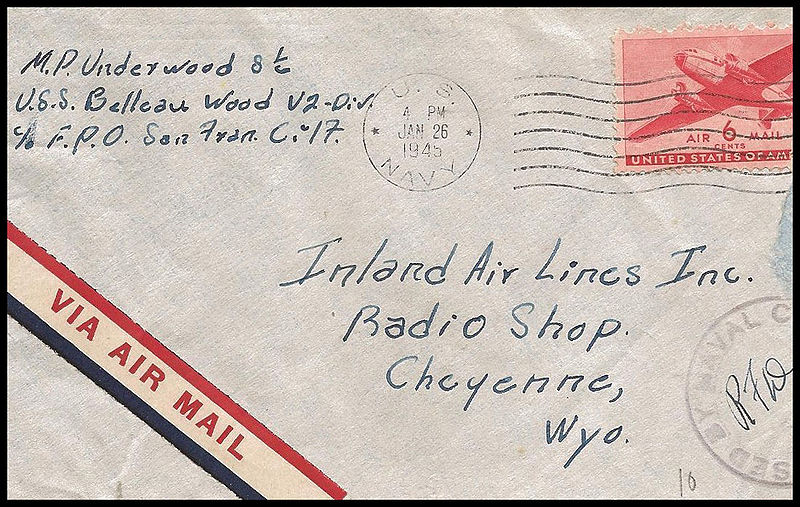 M.P. Underwood S1c
U.S.S. Belleau Wood V2-Div.
c/o F.P.O. San Fran. Ci-17.
U. S.
4 PM
JAN 26
1945
NAVY
AIR 6 MAIL
CENTS
UNITED STATES OF AM
VIA AIR MAIL
Inland Air Lines Inc.
Radio Shop.
Cheyenne,
Wyo.
SED BY NAVAL C
RFW
10